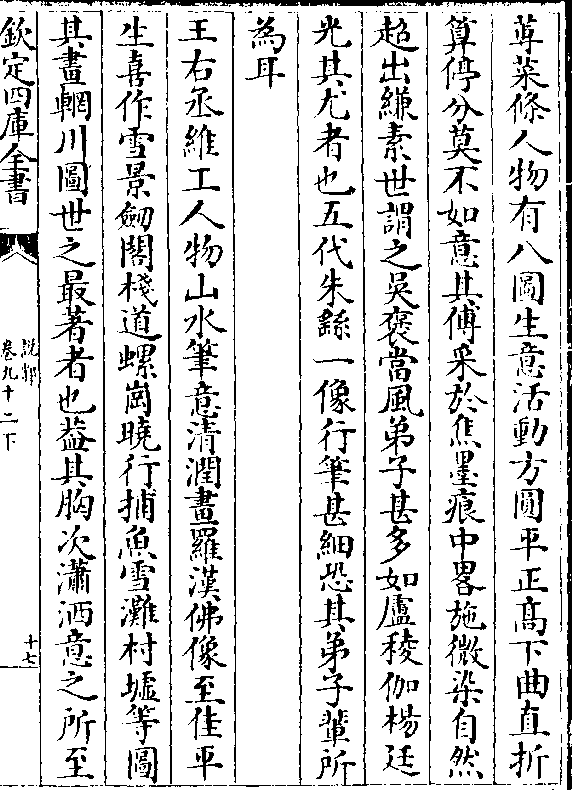 蓴菜條人物有八圖生意活動方圓平正髙下曲直折
算停分莫不如意其傅采於焦墨痕中畧施微染自然
超出縑素世謂之吳裝當風弟子甚多如盧稜伽楊廷
光其尤者也五代朱繇一像行筆甚細恐其弟子輩所
為耳
王右丞維工人物山水筆意清潤畫羅漢佛像至佳平
生喜作雪景劒閣棧道螺岡曉行捕魚雪灘村墟等圖
其畫輞川圖世之最著者也葢其胸次瀟洒意之所至
欽定四庫全書
說郛
卷九十二下
十七